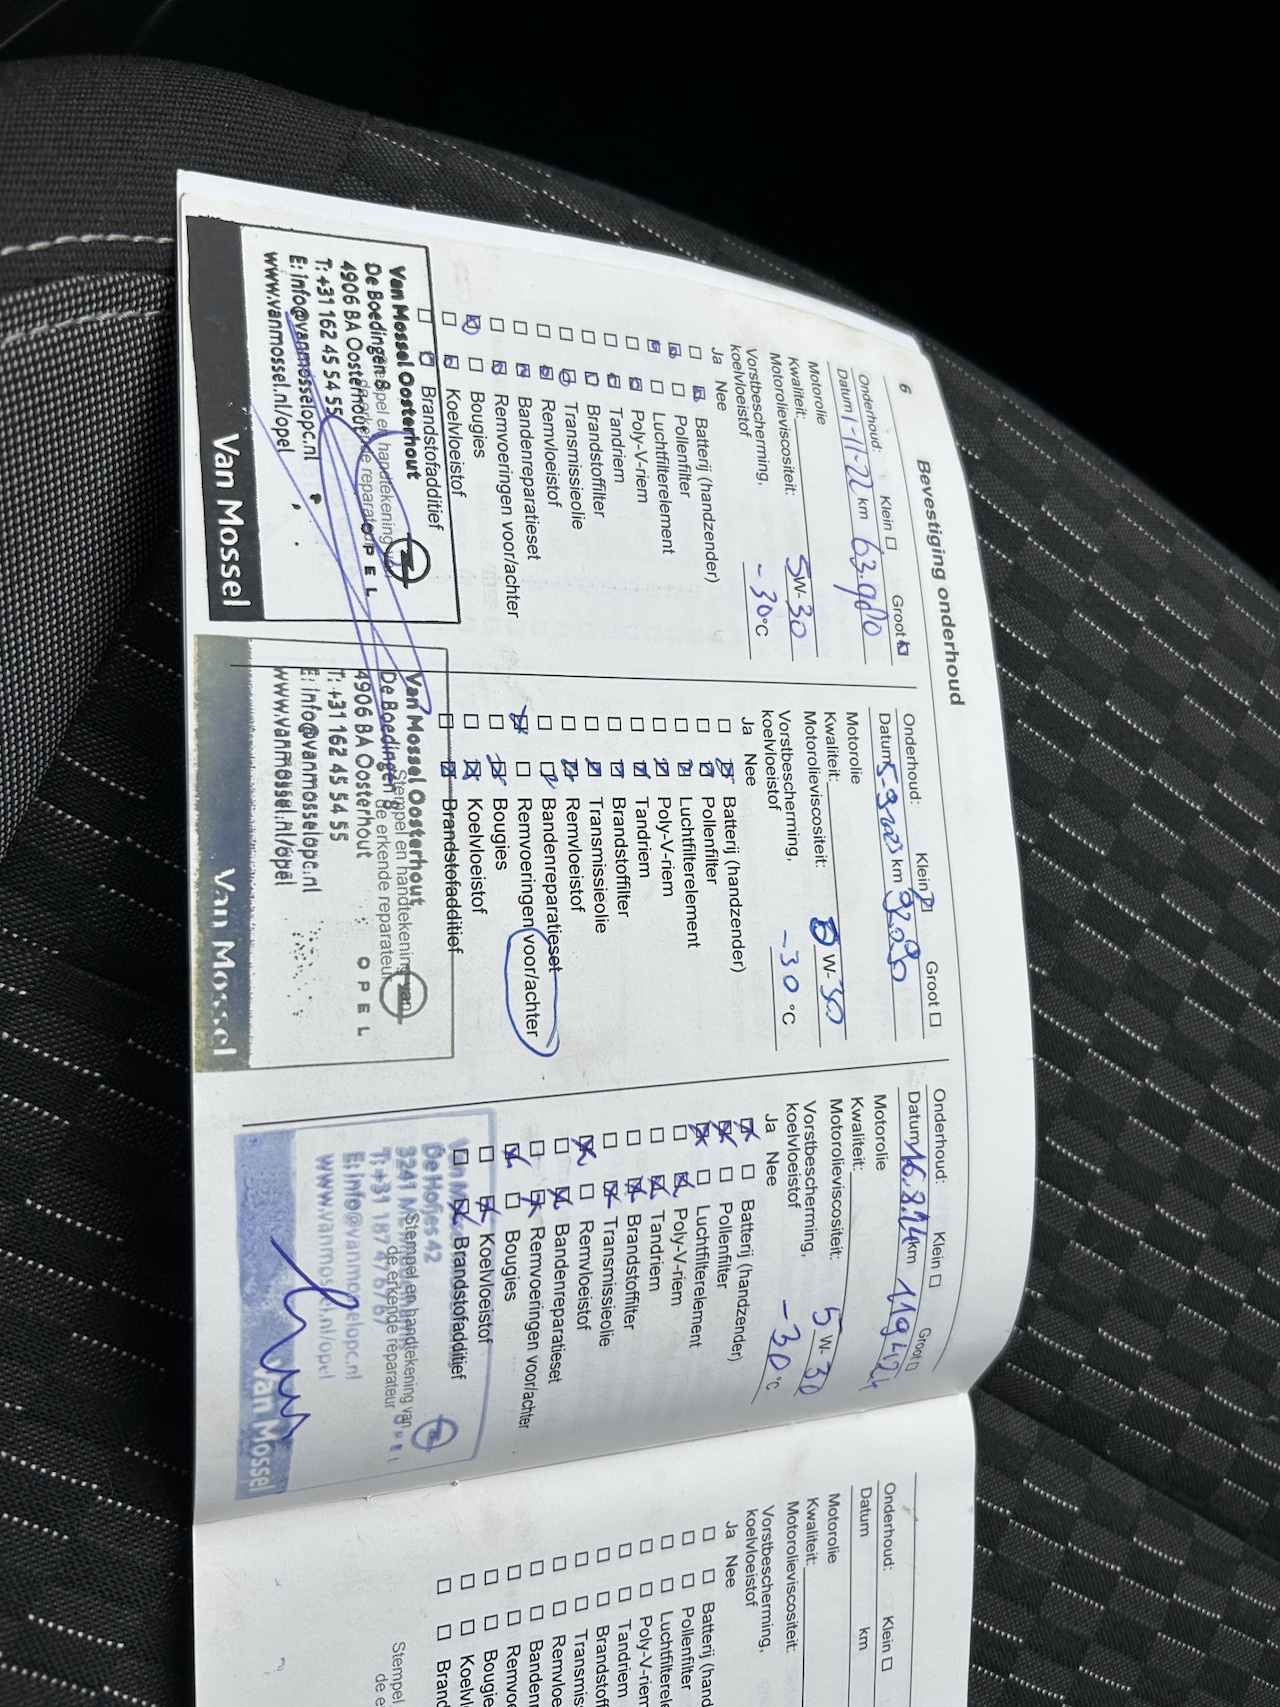 6
Bevestiging onderhoud
Onderhoud: Klein ☐ Groot ☒
Datum 1-11-22 km 63.980
Motorolie
Kwaliteit:
Motorolieviscositeit: 5W-30
Vorstbescherming,
koelvloeistof -30°C
Ja Nee
☐ ☒ Batterij (handzender)
☒ ☐ Pollenfilter
☒ ☐ Luchtfilterelement
☐ ☒ Poly-V-riem
☐ ☒ Tandriem
☐ ☒ Brandstoffilter
☐ ☒ Transmissieolie
☐ ☒ Remvloeistof
☐ ☒ Bandenreparatieset
☐ ☒ Remvoeringen voor/achter
☒ ☐ Bougies
☐ ☒ Koelvloeistof
☐ ☒ Brandstofadditief
Stempel en handtekening van
de erkende reparateur
Van Mossel Oosterhout
De Boedingen 8
4906 BA Oosterhout
T: +31 162 45 54 55
E: info@vanmosselopc.nl
www.vanmossel.nl/opel
OPEL
Van Mossel
Onderhoud: Klein ☒ Groot ☐
Datum 5-9-2023 km
Motorolie
Kwaliteit:
Motorolieviscositeit: 0W-30
Vorstbescherming,
koelvloeistof -30 °C
Ja Nee
☐ ☒ Batterij (handzender)
☐ ☒ Pollenfilter
☐ ☒ Luchtfilterelement
☐ ☒ Poly-V-riem
☐ ☒ Tandriem
☐ ☒ Brandstoffilter
☐ ☒ Transmissieolie
☐ ☒ Remvloeistof
☐ ☒ Bandenreparatieset
☒ ☐ Remvoeringen voor/achter
☐ ☒ Bougies
☐ ☒ Koelvloeistof
☐ ☒ Brandstofadditief
Stempel en handtekening van
de erkende reparateur
Van Mossel Oosterhout
De Boedingen 8
4906 BA Oosterhout
T: +31 162 45 54 55
E: info@vanmosselopc.nl
www.vanmossel.nl/opel
OPEL
Van Mossel
Onderhoud: Klein ☐ Groot ☐
Datum 16.8.24 km 119424
Motorolie
Kwaliteit:
Motorolieviscositeit: 5W-30
Vorstbescherming,
koelvloeistof -30°C
Ja Nee
☒ ☐ Batterij (handzender)
☒ ☐ Pollenfilter
☒ ☐ Luchtfilterelement
☐ ☒ Poly-V-riem
☐ ☒ Tandriem
☐ ☒ Brandstoffilter
☐ ☒ Transmissieolie
☒ ☐ Remvloeistof
☐ ☒ Bandenreparatieset
☐ ☒ Remvoeringen voor/achter
☒ ☐ Bougies
☐ ☒ Koelvloeistof
☐ ☒ Brandstofadditief
Stempel en handtekening van
de erkende reparateur
De Hofjes 42
3241
T: +31 187 47 67 67
E: info@vanmosselopc.nl
www.vanmossel.nl/opel
OPEL
Van Mossel
Onderhoud: Klein ☐
Datum km
Motorolie
Kwaliteit:
Motorolieviscositeit:
Vorstbescherming,
koelvloeistof
Ja Nee
☐ ☐ Batterij (hand
☐ ☐ Pollenfilter
☐ ☐ Luchtfilterele
☐ ☐ Poly-V-riem
☐ ☐ Tandriem
☐ ☐ Brandstof
☐ ☐ Transmis
☐ ☐ Remvloe
☐ ☐ Banden
☐ ☐ Remvo
☐ ☐ Bougie
☐ ☐ Koelvl
☐ ☐ Brand
Stempel
de e